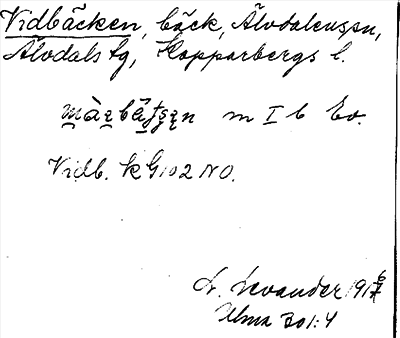 Vidbäcken, bäck, Älvdalens sn,
Älvdals tg, Kopparbergs l.
m I b Ev.
Vidb. k G 102 NO.
L. Levander 1917
Ulma 301:4